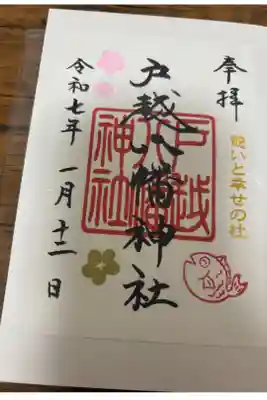 奉拝
祝いと幸せの社
戸越八幡神社
戸越
八幡
神社
令和七年 一月十二日